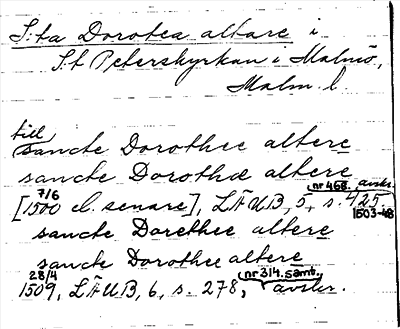 S:ta Dorotea altare i
S:t Peterskyrkan i Malmö,
Malm. l.
till
sancte Dorothee altere
sancte Dorothæ altere
7/6 nr 468. avskr.
[1500 el. senare], LÄUB, 5, s. 425.
1503-48
sancte Dorethee altere
sancte Dorothee altere
28/4 nr 314. samt.
1509, LÄUB, 6, s. 278, avskr.